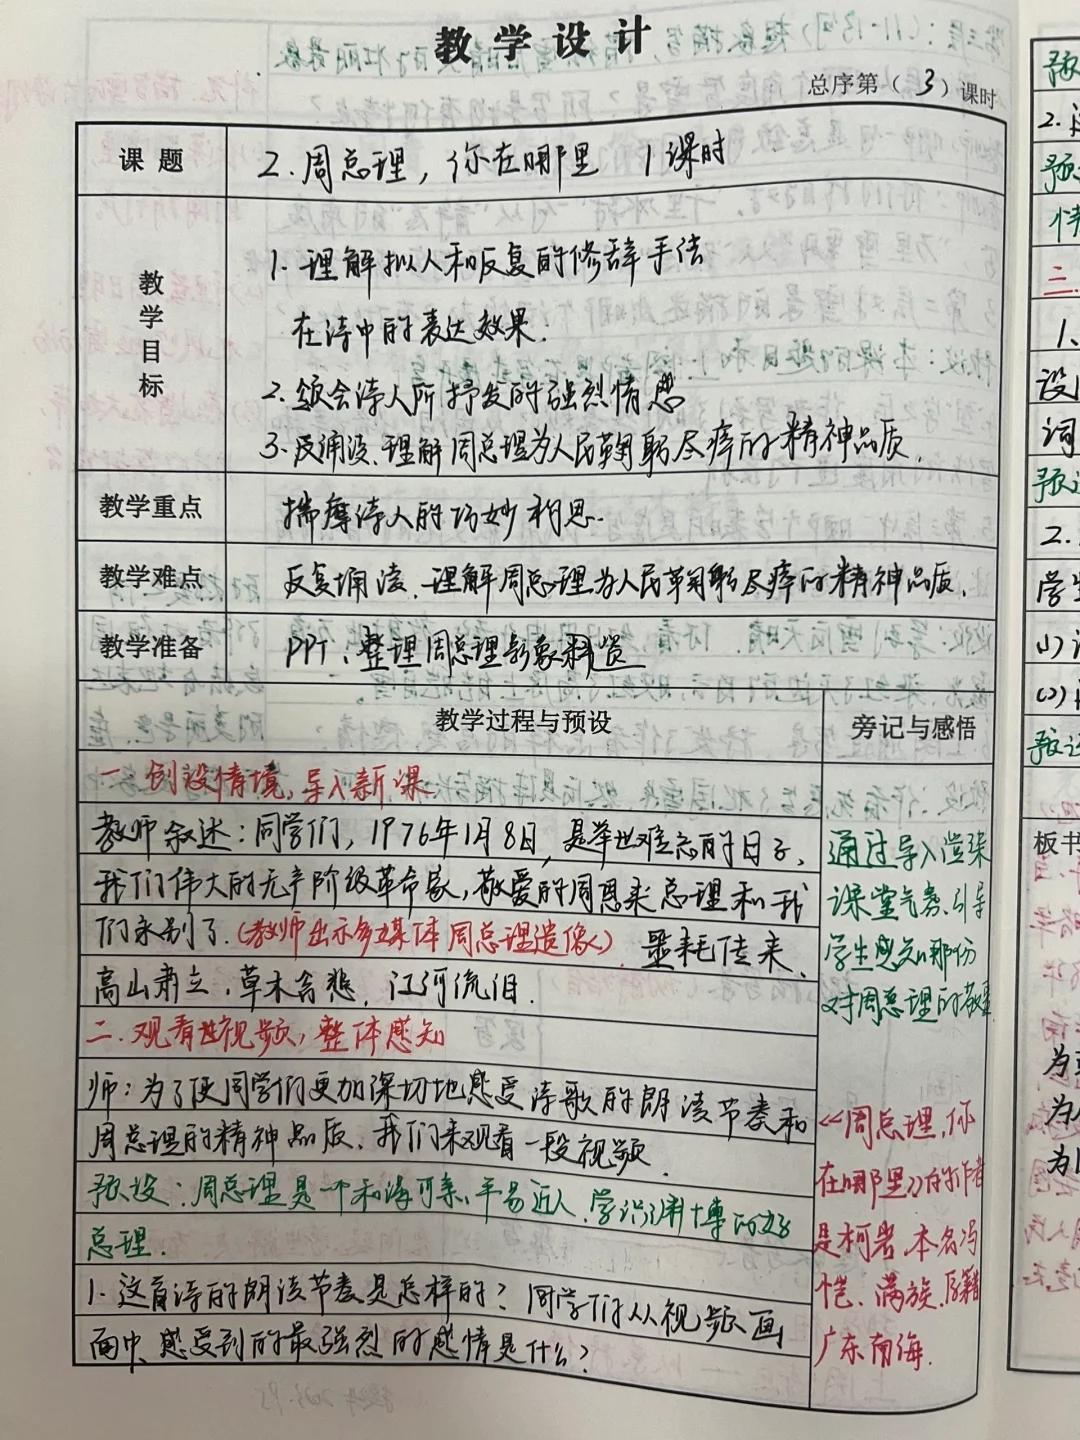 教学设计
总序第（3）课时
课题
2.周总理，你在哪里 1课时
教学目标
1.理解拟人和反复的修辞手法
在诗中的表达效果.
2.领会诗人所抒发的强烈情感
3.反诵读、理解周总理为人民鞠躬尽瘁的精神品质.
教学重点
揣摩诗人的巧妙构思.
教学难点
反复诵读、理解周总理为人民鞠躬尽瘁的精神品质.
教学准备
PPT、整理周总理影象料
教学过程与预设
旁记与感悟
一.创设情境,导入新课
教师叙述：同学们，1976年1月8日，是举世难忘的日子、
我们伟大的无产阶级革命家,敬爱的周恩来总理和我
们永别了.(教师出示多媒体周总理遗像).噩耗传来、
高山肃立，草木含悲，江河流泪.
二.观看视频，整体感知
师：为了使同学们更加深切地感受诗歌的朗读节奏和
周总理的精神品质、我们来观看一段视频.
预设：周总理是一个和谐可亲、平易近人、学识渊博的好
总理.
1.这首诗的朗读节奏是怎样的？同学们从视频画
面中、感受到的最强烈的感情是什么？
通过导入渲染
课堂气氛、引导
学生感知那份
对周总理的敬
《周总理,你
在哪里》的作者
是柯岩、本名冯
恺、满族、原籍
广东南海.
2.
二.
1、
设
词
2.
学生
(1)
(2)
板书
为
为
为